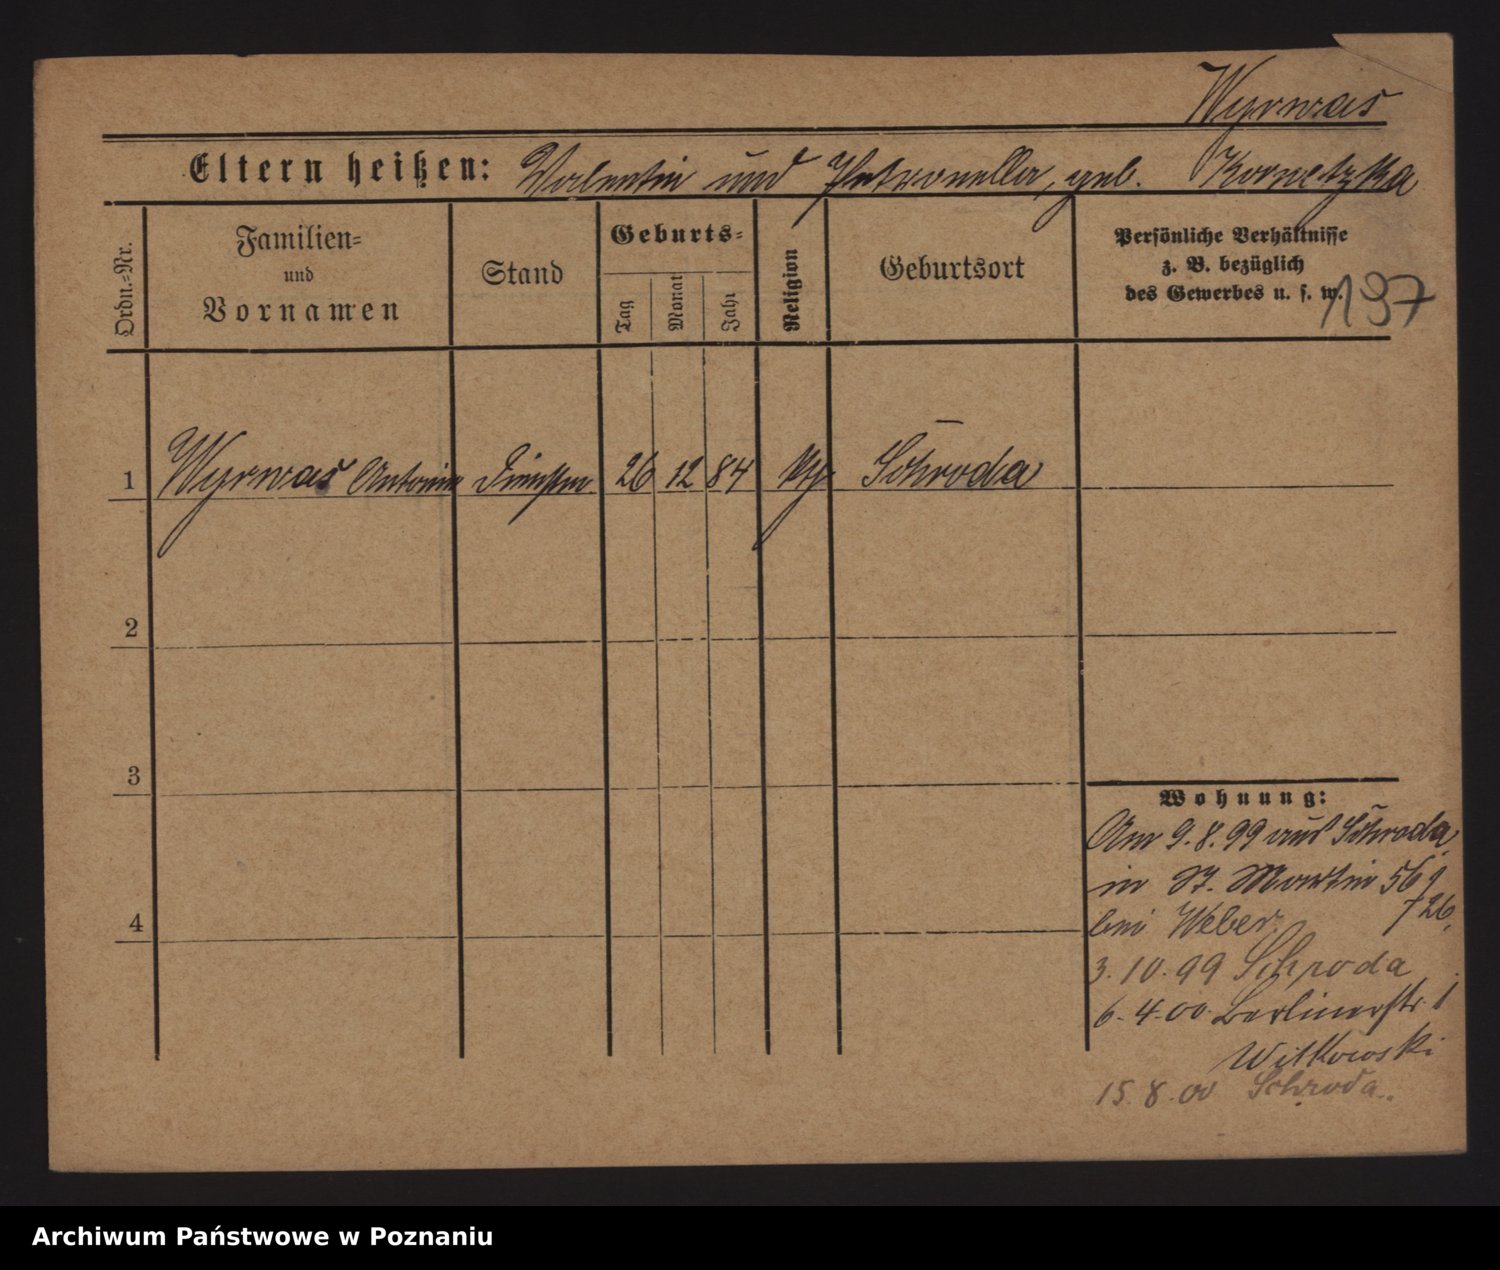 Wyrwas
Eltern heißen: Valentin und Petronella, geb. Kornetzka
Ordn.=Nr.
Familien=
und
Vornamen
Stand
Geburts=
Tag
Monat
Jahr
Religion
Geburtsort
Persönliche Verhältnisse
z. B. bezüglich
des Gewerbes u. s. w.
197
1 Wyrwas Antonie 26 12 84 kth Schroda
2
3
4
Wohnung:
Am 9.8.99 aus Schroda
in St. Martin 56
bei Weber. 726.
3.10.99 Schroda
6.4.00. Berlinerstr. 1
Witkowski
15.8.00 Schroda.
Archiwum Państwowe w Poznaniu